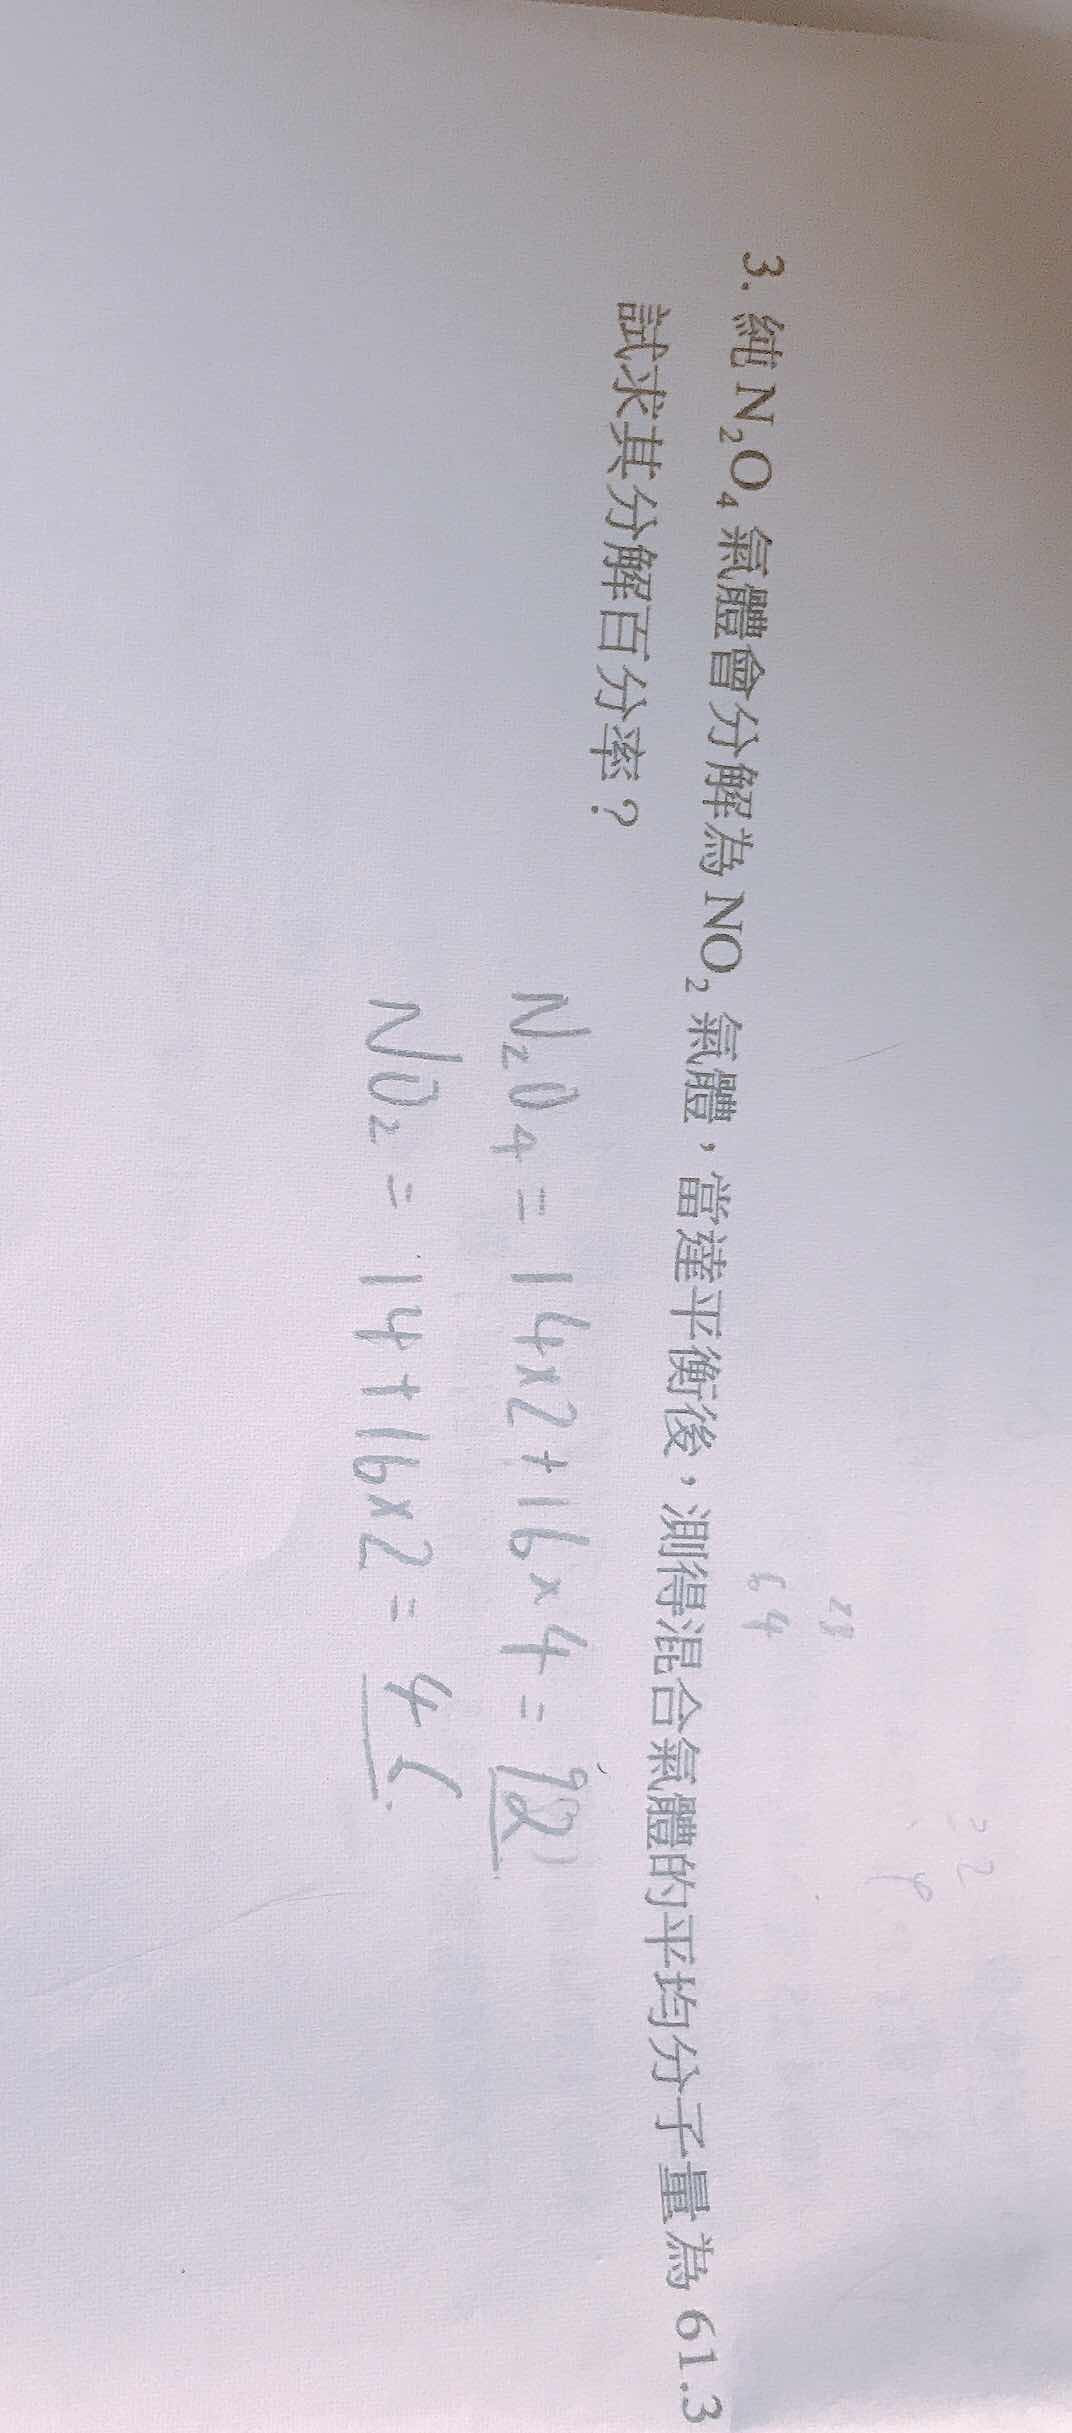 3. 純 N₂O₄ 氣體會分解為 NO₂ 氣體，當達平衡後，測得混合氣體的平均分子量為 61.3
試求其分解百分率？
28
64
N₂O₄ = 14×2+16×4 = 92
NO₂ = 14+16×2 = 46